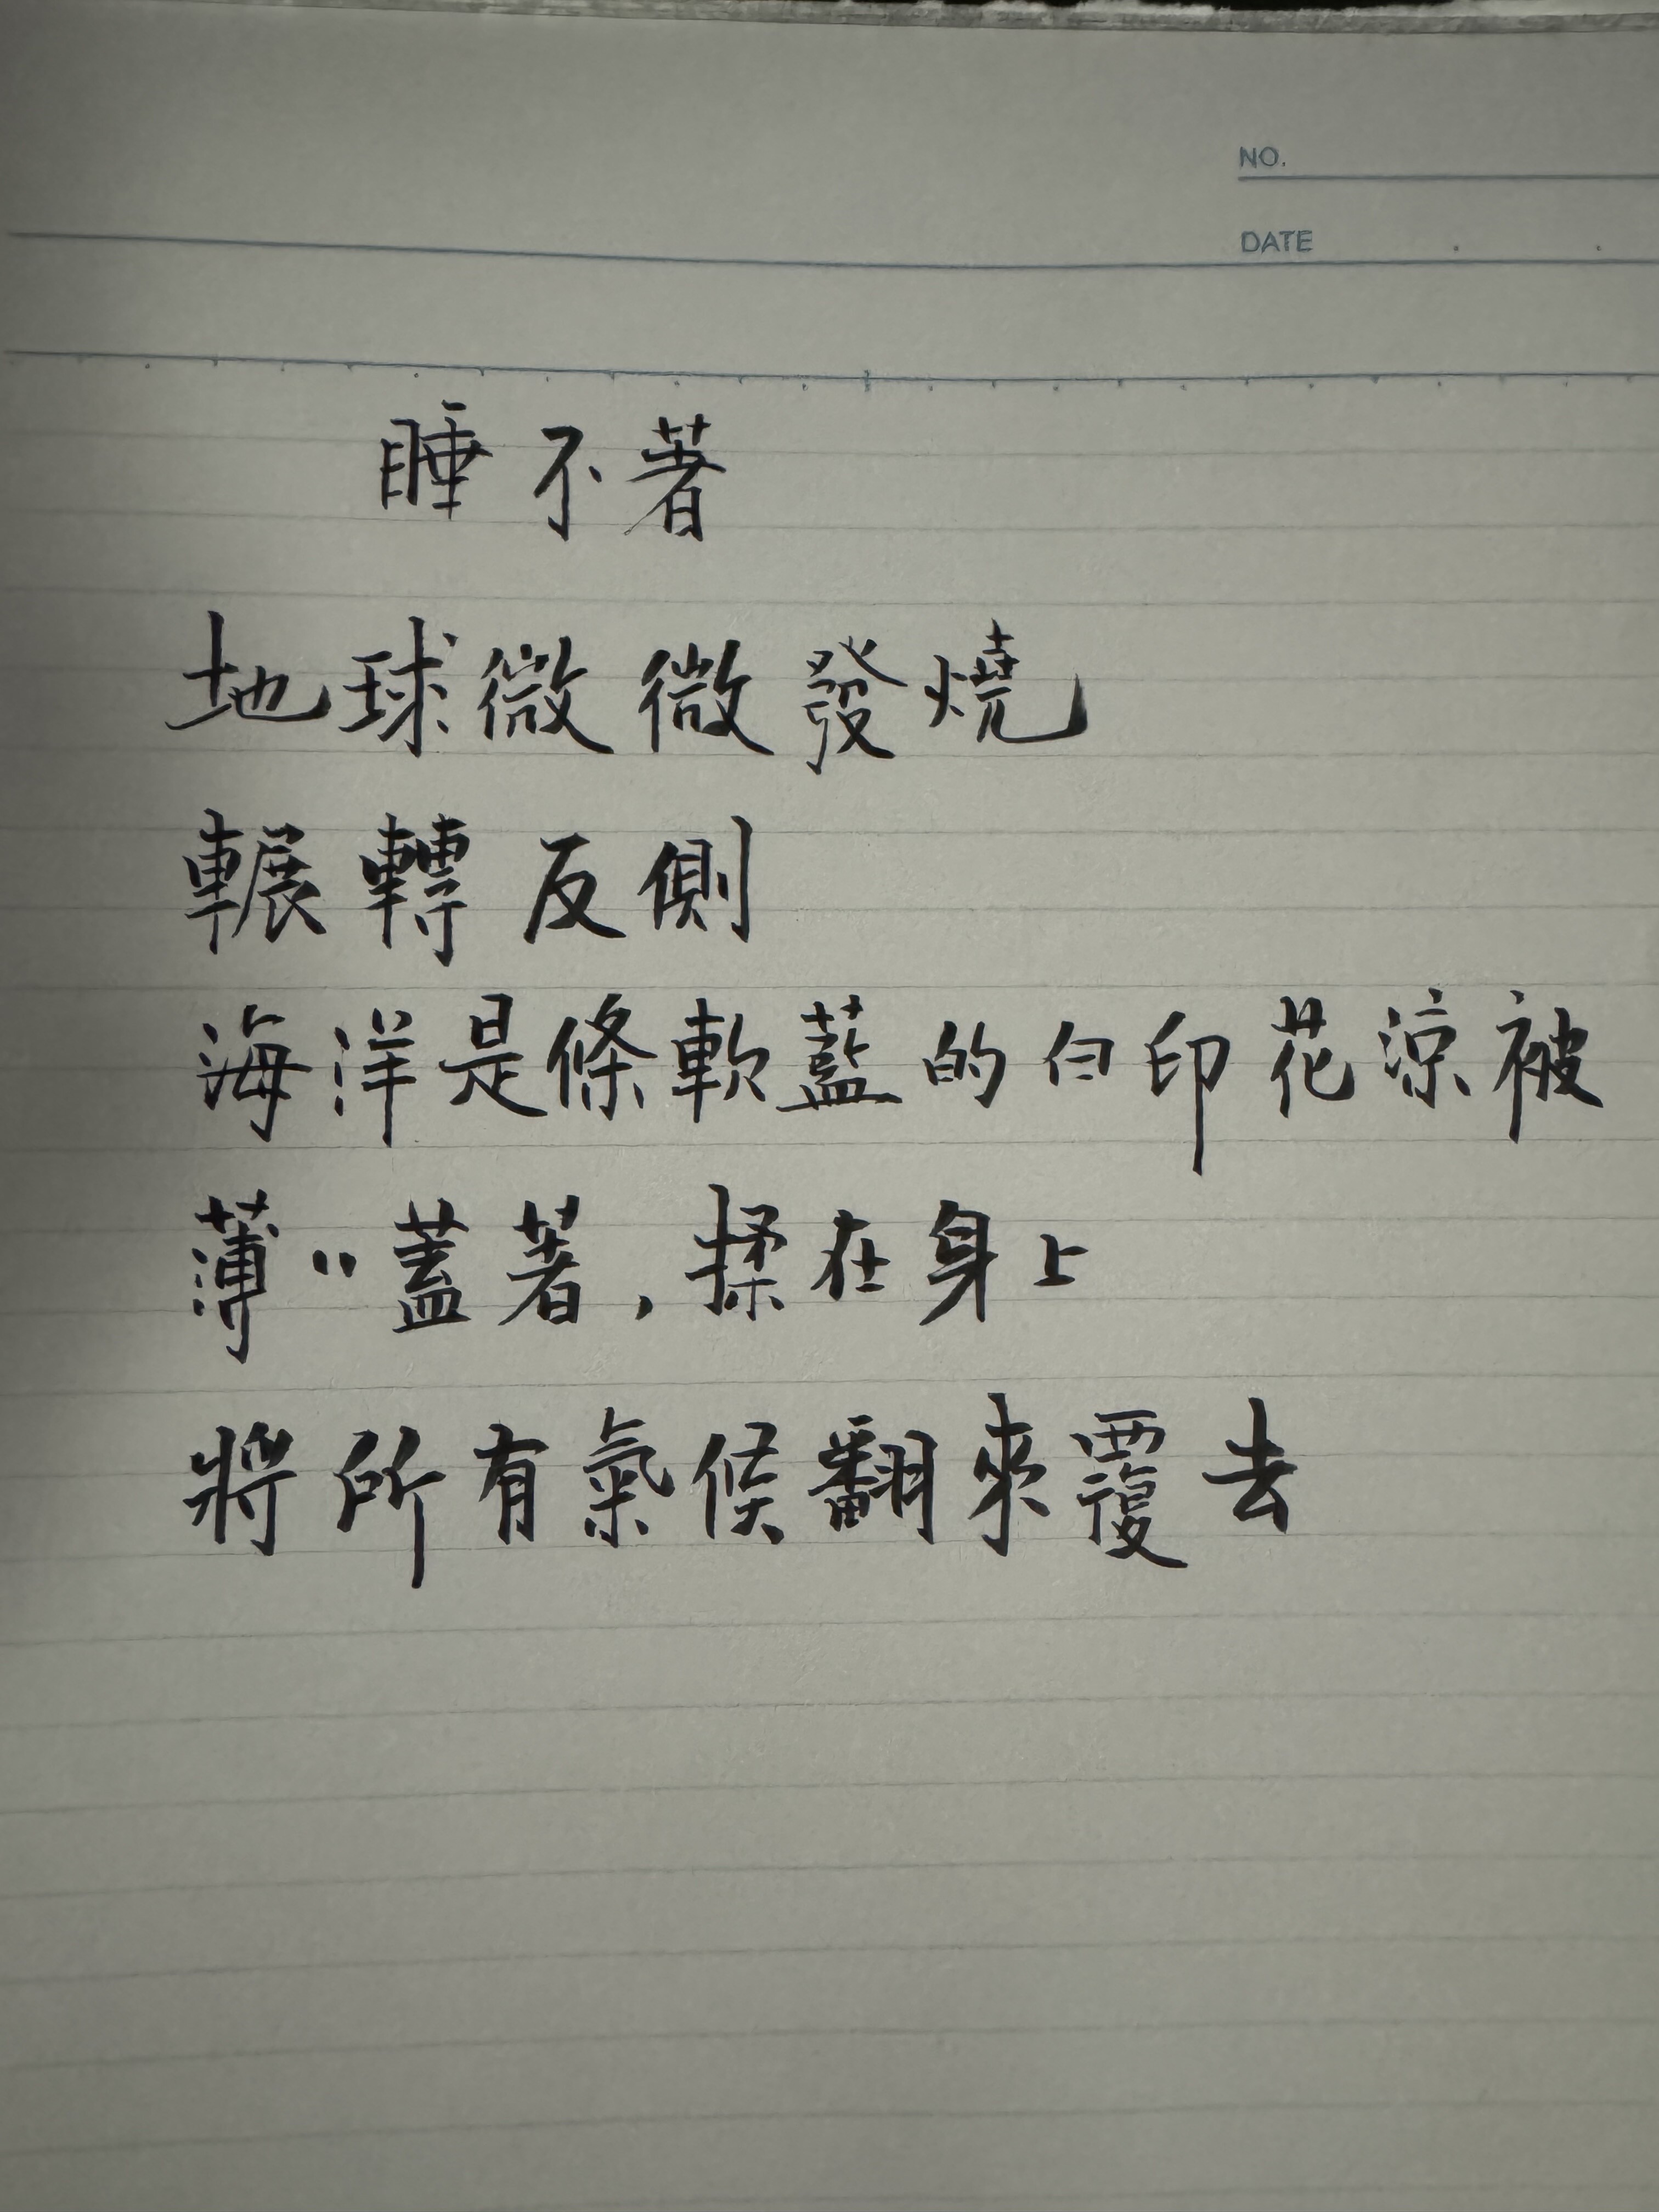 NO.
DATE
睡不著
地球微微發燒
輾轉反側
海洋是條軟藍的白印花涼被
薄〃蓋著,揉在身上
將所有氣候翻來覆去